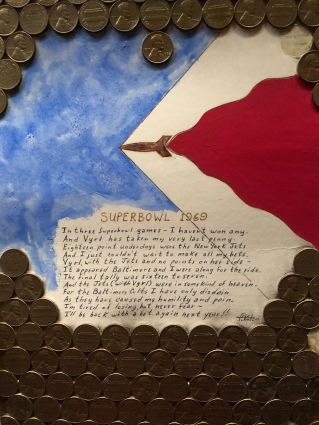 SUPERBOWL 1969
In three Superbowl games - I haven't won any.
And Vyrl has taken my very last penny.
Eighteen point underdogs were the New York Jets
And I just couldn't wait to make all my bets.
Vyrl, with the Jets and no points on her side -
It appeared Baltimore and I were along for the ride.
The final tally was sixteen to seven.
And the Jets (with Vyrl) were in some kind of heaven.
For the Baltimore Colts I have only disdain
As they have caused my humility and pain.
I'm tired of losing, but never fear -
I'll be back with a bet again next year!!